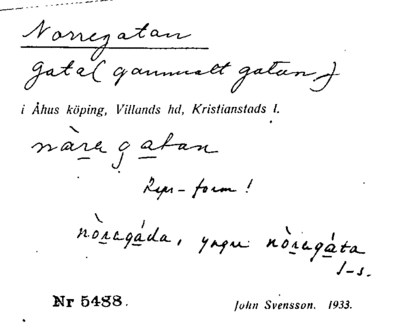 Norregatan
gata (gammalt gatan)
i Åhus köping, Villands hd, Kristianstads l.
nàregatan
Rspr-form!
nòregáda, yngre nòregáta
J-s.
Nr 5488. John Svensson. 1933.